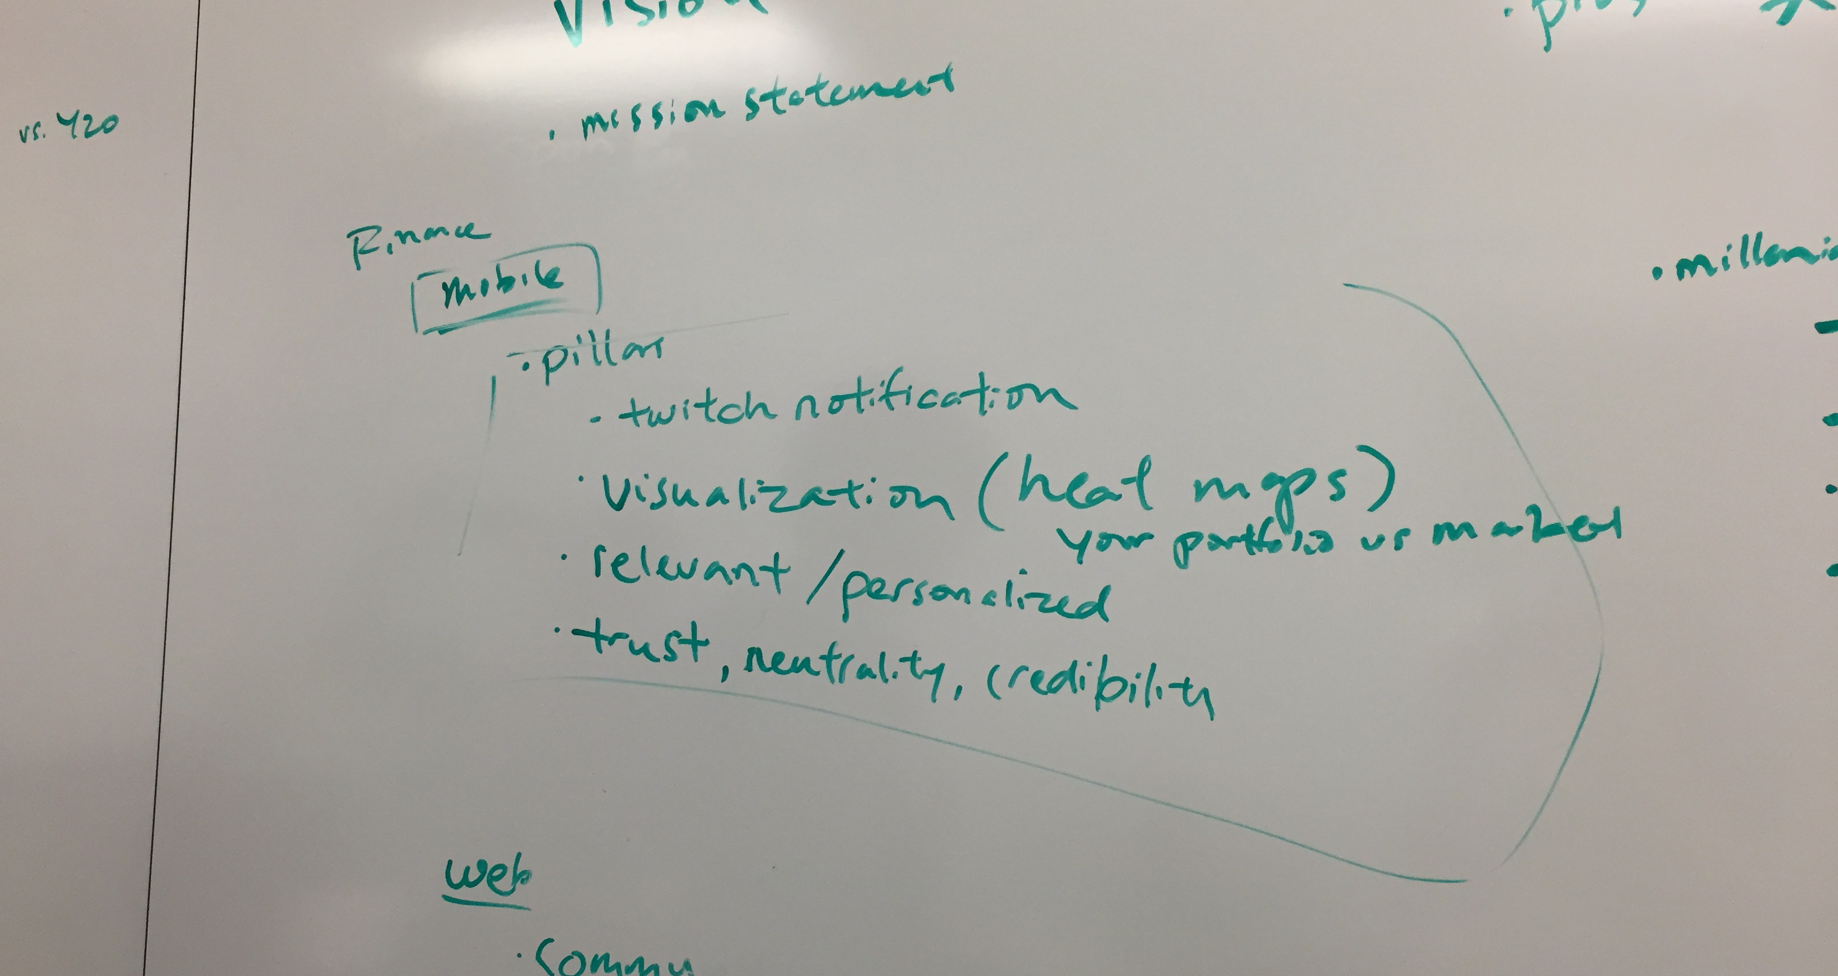 Vision
· mission statement
vs. Y20
Finance
mobile
· pillar
· twitch notification
· visualization (heat maps)
your portfolio vs market
· relevant / personalized
· trust, neutrality, credibility
web
· commu
· millenia